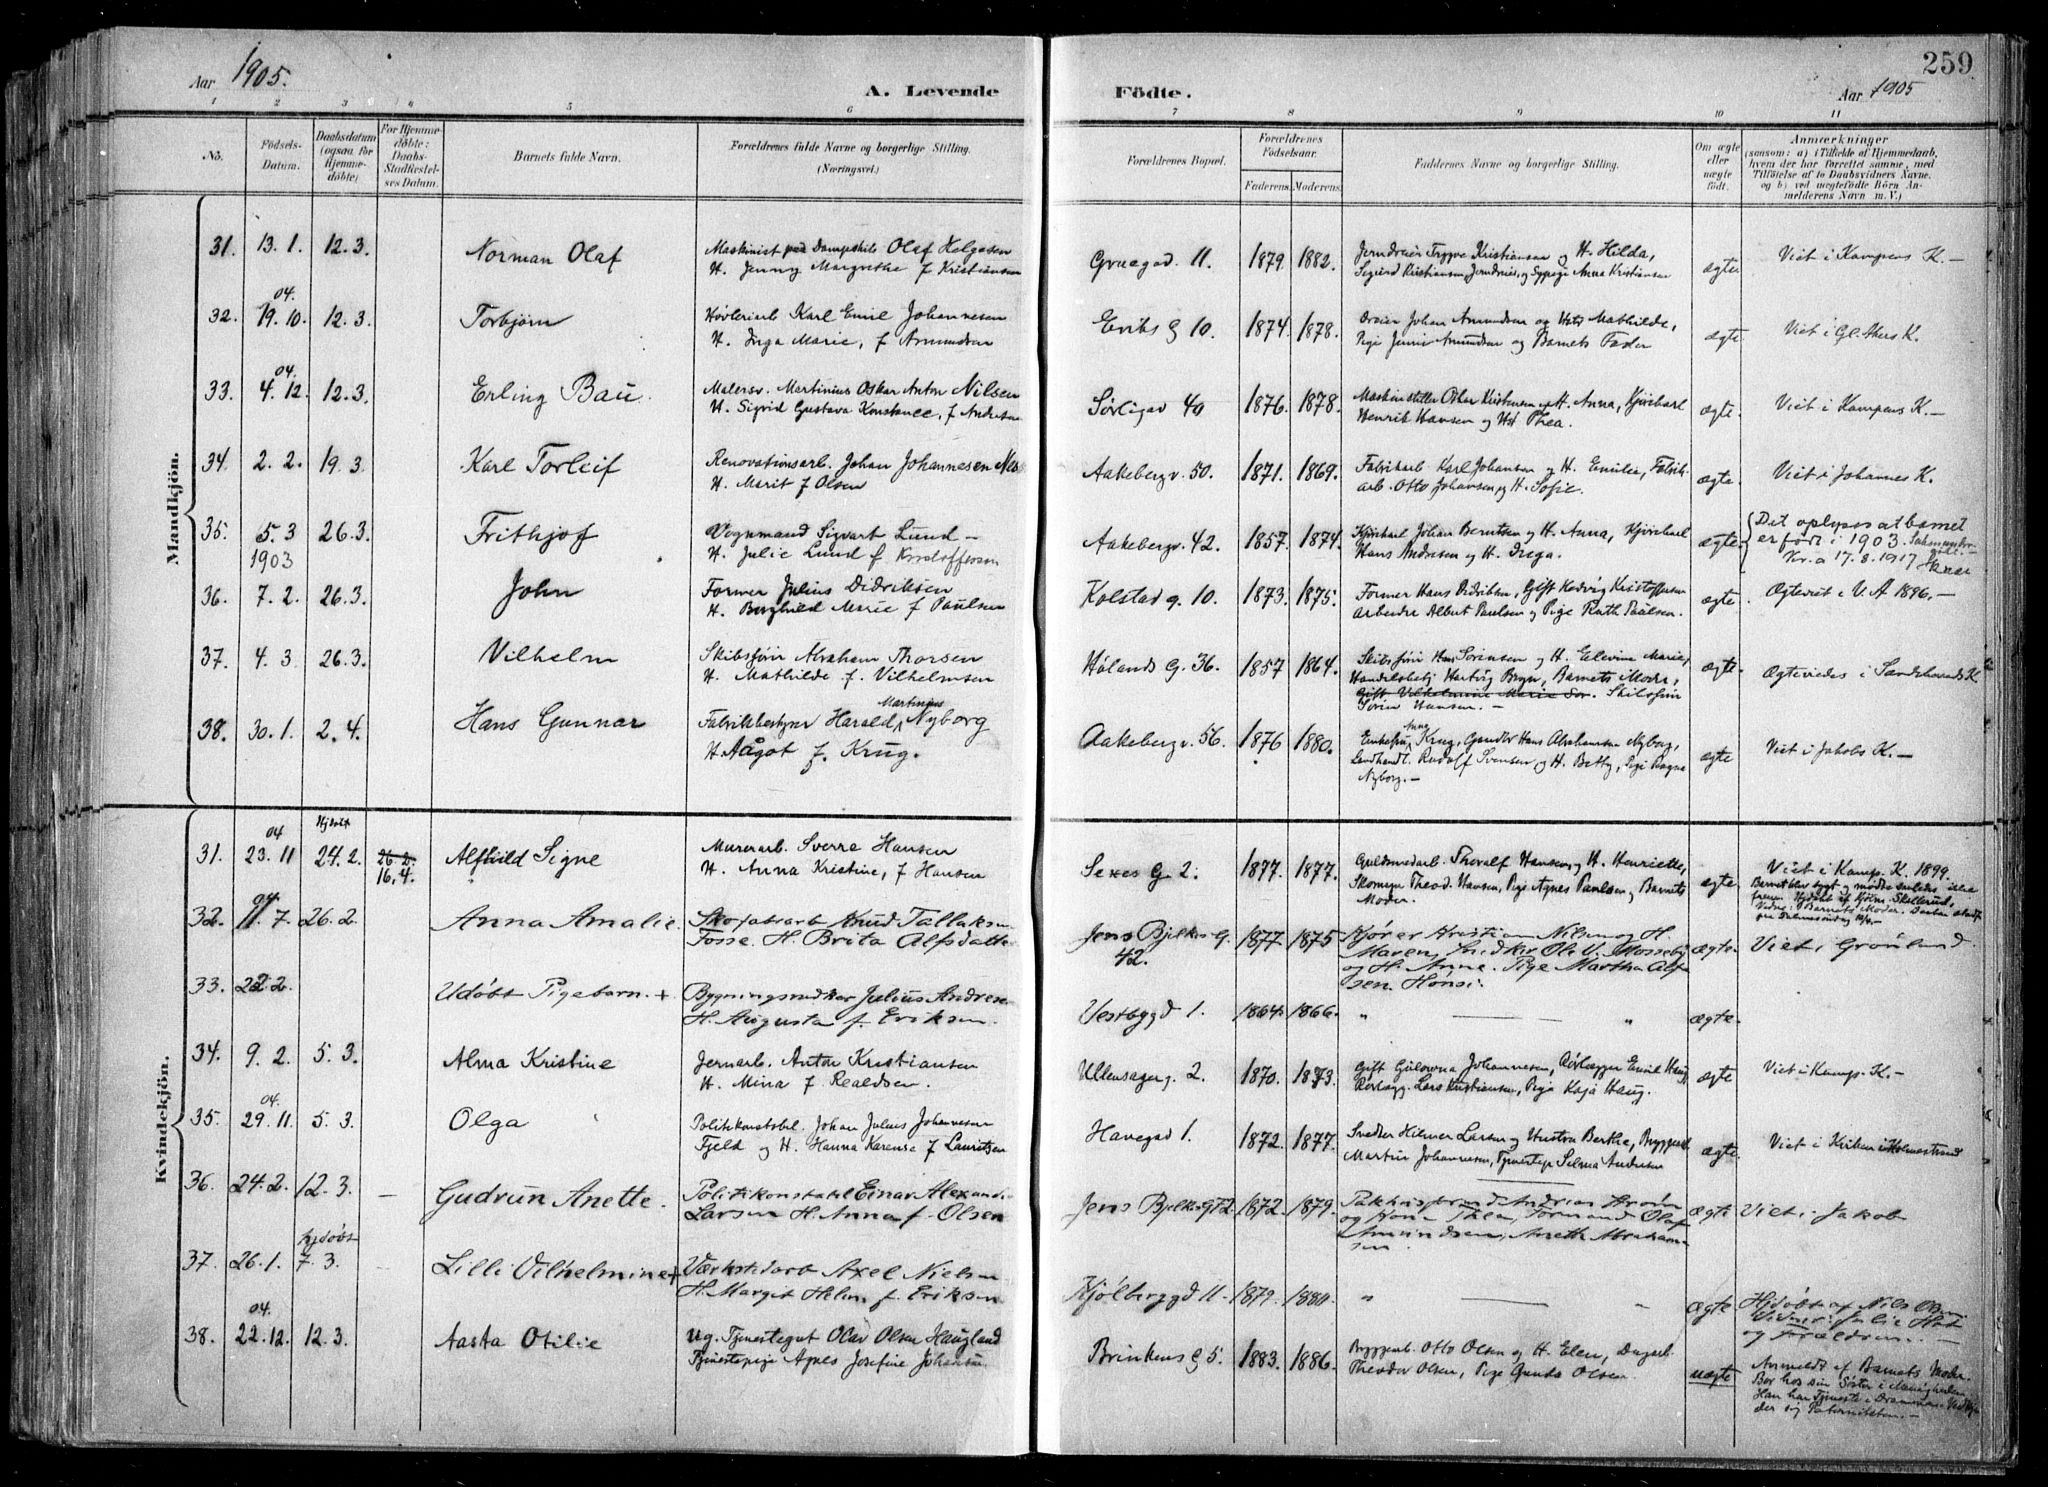 259
Aar 1905.
A. Levende Fødte.
Aar 1905
1 2 3 4 5 6 7 8 9 10 11
No.
Fødsels-
Datum.
Daabsdatum
(ogsaa for
Hjemme-
døbte)
For Hjemme-
døbte:
Daabs-
Stadfæstel-
ses Datum.
Barnets fulde Navn.
Forældrenes fulde Navne og borgerlige Stilling.
(Næringsvei.)
Forældrenes Bopæl.
Forældrenes
Fødselsaar.
Faderens. Moderens.
Faddernes Navne og borgerlige Stilling.
Om ægte
eller
uægte
født.
Anmærkninger
(saasom: a) i Tilfælde af Hjemmedaab,
hvem der har forrettet samme, med
Tilføielse af to Daabsvidners Navne,
og b) ved uægtefødte Børn An-
melderens Navn m. V.)
Mandkjøn.
31. 13. 1. 12. 3. Norman Olaf
Maskinist paa Dampskib Olaf Helgesen
H. Jenny Margrethe f Kristiansen
Gruegad 11. 1879. 1882.
Jerndreier Trygve Kristiansen og H. Hilda,
Sigurd Kristiansen Jerndreier, og Sypige Anna Kristiansen
ægte Viet i Kampens K. –
32. 04. 19. 10. 12. 3. Torbjørn
Høvleriarb Karl Emil Johannesen
H. Inga Marie, f Amundsen
Eriks g 10. 1874. 1878.
Dreier Johan Amundsen og Hst Mathilde,
Pige Jenni Amundsen og Barnets Fader
ægte. Viet i Gl. Akers K.
33. 04. 4. 12. 12. 3. Erling Bau
Malersv. Martinius Oskar Anton Nilsen
H. Sigrid Gustava Konstance, f Andersen
Sørligad 4a 1876. 1878.
Maskinstiller Oskar Kristensen og H. Anna, Kjørekarl
Henrik Hansen og Hst Thea.
ægte. Viet i Kampens K. –
34 2. 2. 19. 3. Karl Torleif
Renovationsarb. Johan Johannesen
H. Marit f Olsen
Aakebergv. 50. 1871. 1869.
Fabrikarb Karl Johansen og H. Emilie, Fabrik-
arb. Otto Johansen og H. Sofie.
ægte. Viet i Johannes K.
35. 5. 3 1903 26. 3. Frithjof
Vognmand Sigvart Lund –
H. Julie Lund f Kristoffersen
Aakebergv. 42. 1857. 1874.
Kjørekarl Johan Berntsen og H. Anna, Kjørekarl
Hans Andresen og H. Inga.
ægte. Det oplyses at barnet
er født i 1903.
Kr.a 17. 8. 1917
36. 7. 2. 26. 3. John
Former Julius Didriksen
H. Borghild Marie f Paulsen
Kolstad g. 10. 1873. 1875.
Former Hans Didriksen, Gift Hedvig Kristoffersen
Arbeider Albert Paulsen og Pige Ruth Paulsen.
ægte. Ægteviet i V. A 1896. –
37. 4. 3 26. 3. Vilhelm
Skibsfører Abraham Thorsen
H. Mathilde f. Vilhelmsen
Hølands G. 36. 1857 1864.
Skibsfører Hans Sørensen og H. Elevine Marie,
Handelsbetj Hartvig Bryn, Barnets Moder,
Gift Vilhelmine Marie Sør. Skibsfører
Søren Hansen. –
ægte. Ægteviedes i Sandehereds K.
38. 30. 1. 2. 4. Hans Gunnar
Fabrikbestyrer Harald Martinius Nyborg
H. Aagot f. Krug.
Aakebergv. 56. 1876 1880.
Enkefru Anna Krug, Gaardbr Hans Abrahamsen Nyborg,
Landhandl. Rudolf Svensen og H. Betty, Pige Ragna
Nyborg. –
ægte Viet i Jakobs K. –
Kvindekjøn.
31. 04 23. 11 Hjdøbt 24. 2. 26. 2. 16. 4. Alfhild Signe
Murerarb. Sverre Hansen
H. Anna Kristine, f Hansen
Sexes G. 2. 1877. 1877.
Guldsmedarb. Thoralf Hansen og H. Henriette,
Skomagr Theod. Hansen, Pige Agnes Paulsen og Barnets
Moder.
ægte Viet i Kamp. K. 1899.
32. 04. 11. 7 26. 2. Anna Amalie
Skofabarb Knud Tallaksen
Fosse. H. Brita Alfsdatter
Jens Bjelkes G.
42. 1877. 1875
Kjører Kristian Nilsen og H.
Maren, Snidker Ole V. Mosseby
og H. Anne. Pige Martha Alf
sen Hønsi.
ægte. Viet i Grønland
33. 22. 2. Udøbt Pigebarn. +
Bygningssnedker Julius Andresen
H. Augusta f. Eriksen.
Vestbygd 1. 1864. 1866. " — " ægte.
34. 9. 2. 5. 3. Alma Kristine
Jernarb. Anton Kristiansen
H. Mina f Realdsen.
Ullensagerg. 2. 1870. 1873.
Gift Gulowna Johannesen, Rørlægger Emil Haug,
Rørlægg. Lars Kristiansen, Pige Kaja Haug.
ægte Viet i Kamp. K. –
35. 04. 29. 11. 5. 3. Olga
Politikonstabel. Johan Julius Johannesen
Fjeld og H. Hanna Karense f Lauritsen
Havegad 1. 1872. 1877.
Snedker Hilmer Larsen og Hustru Berthe, Byggearb
Martin Johannesen, Tjenestepige Selma Andersen
ægte. Viet i Kirken i Holmestrand
36. 24. 2. 12. 3. – Gudrun Anette.
Politikonstabel Einar Alexander
Larsen H. Anna f. Olsen
Jens Bjelkes G 72 1872. 1879.
Pakhusformand Andreas
og Kone Thea, Formand Olaf
Amundsen, Anette Abraham-
sen.
ægte Viet i Jakob
37. 26. 1. hjdøbt 7. 3. Lilli Vilhelmine +
Værkstedarb Axel Nielsen
H. Margit Helene f. Eriksen
Kjølberggd 11. 1879. 1880. " — "
ægte Hjdøbt af Nils
Vidner: Julie
og Forældrene. –
38. 04. 22. 12. 12. 3. Aasta Otilie
Ug. Tjenestegut Olav Olsen Haugland
Tjenestepige Agnes Josefine Johansen
Brinkens g 5. 1883. 1886.
Byggearb. Otto Olsen og H. Elen, Dagarb.
Theodor Olsen, Pige Gunda Olsen.
uægte Anmeldt af Barnets Moder.
Bor hos sin Søster i Menigheden.
Han har Tjeneste i Drammen. Vedkjen
der sig Paterniteten. –